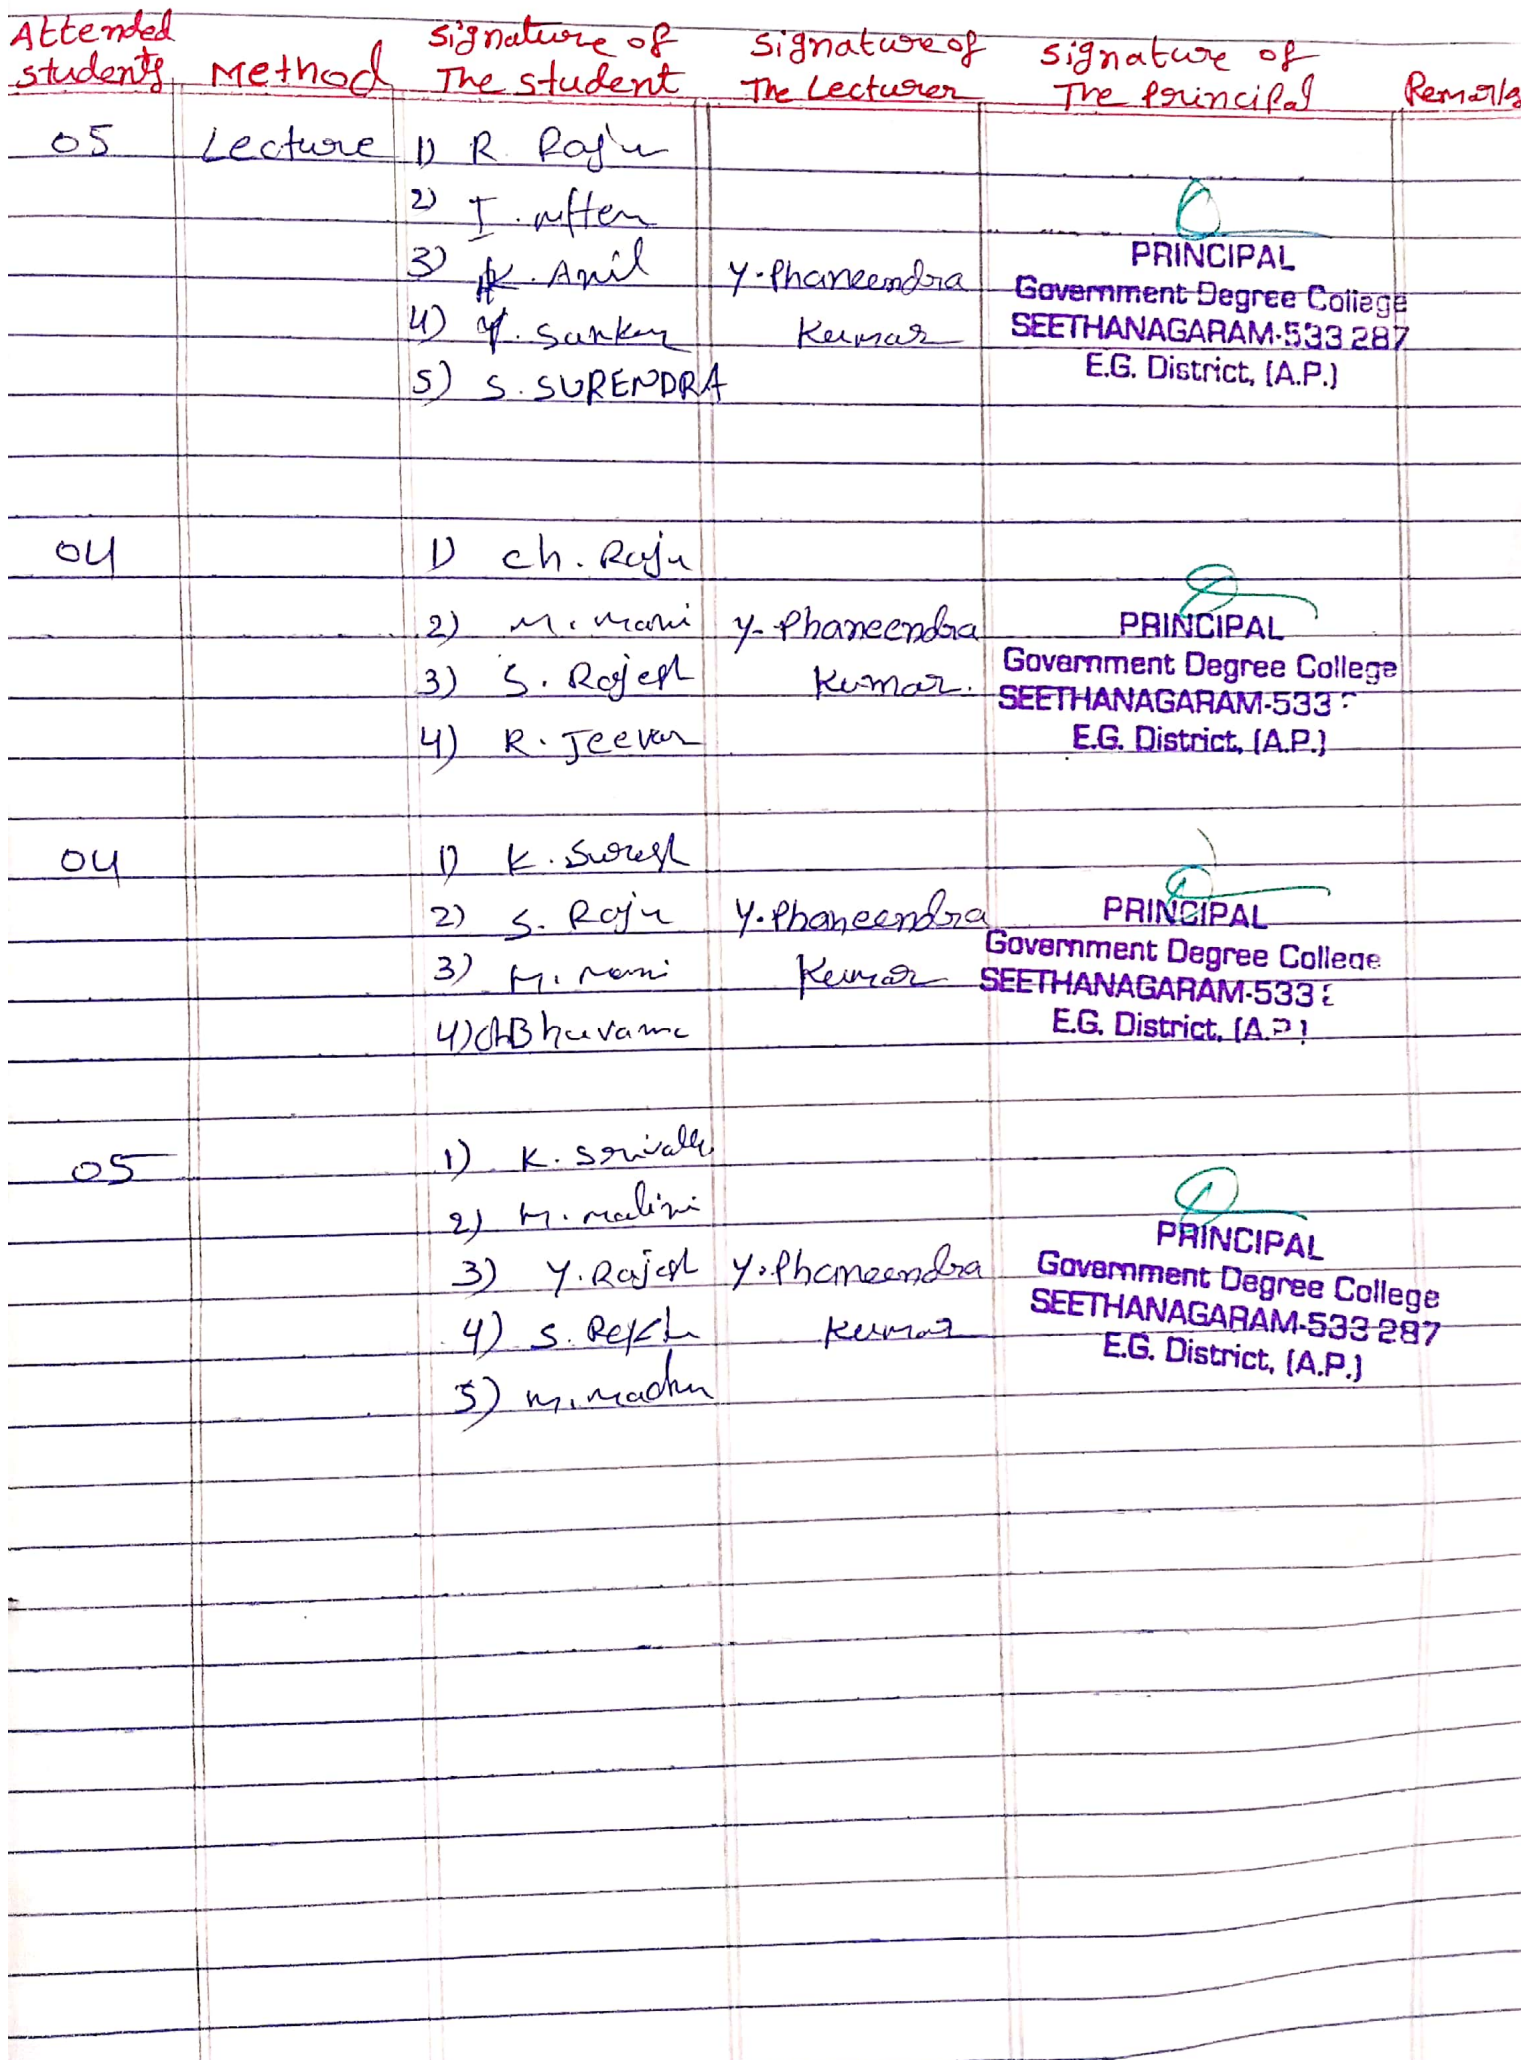 Attended students Method Signature of The student Signature of The Lecturer Signature of The Principal Remarks
05 Lecture 1) R. Raju
2) I.
3) K. Anil Y. Phaneendra
4) Y. Sankar Kumar
5) S. SURENDRA
PRINCIPAL
Government Degree College
SEETHANAGARAM-533 287
E.G. District, (A.P.)
04 1) Ch. Raju
2) M. Mani Y. Phaneendra
3) S. Rajesh Kumar.
4) R. Jeevan
PRINCIPAL
Government Degree College
SEETHANAGARAM-533
E.G. District, (A.P.)
04 1) K. Suresh
2) S. Raju Y. Phaneendra
3) M. Kumar
4) Ch Bhuvana
PRINCIPAL
Government Degree College
SEETHANAGARAM-533
E.G. District, (A.P.)
05 1) K. Srivalli
2) M. Malini
3) Y. Rajesh Y. Phaneendra
4) S. Kumar
5) M. Madhu
PRINCIPAL
Government Degree College
SEETHANAGARAM-533 287
E.G. District, (A.P.)